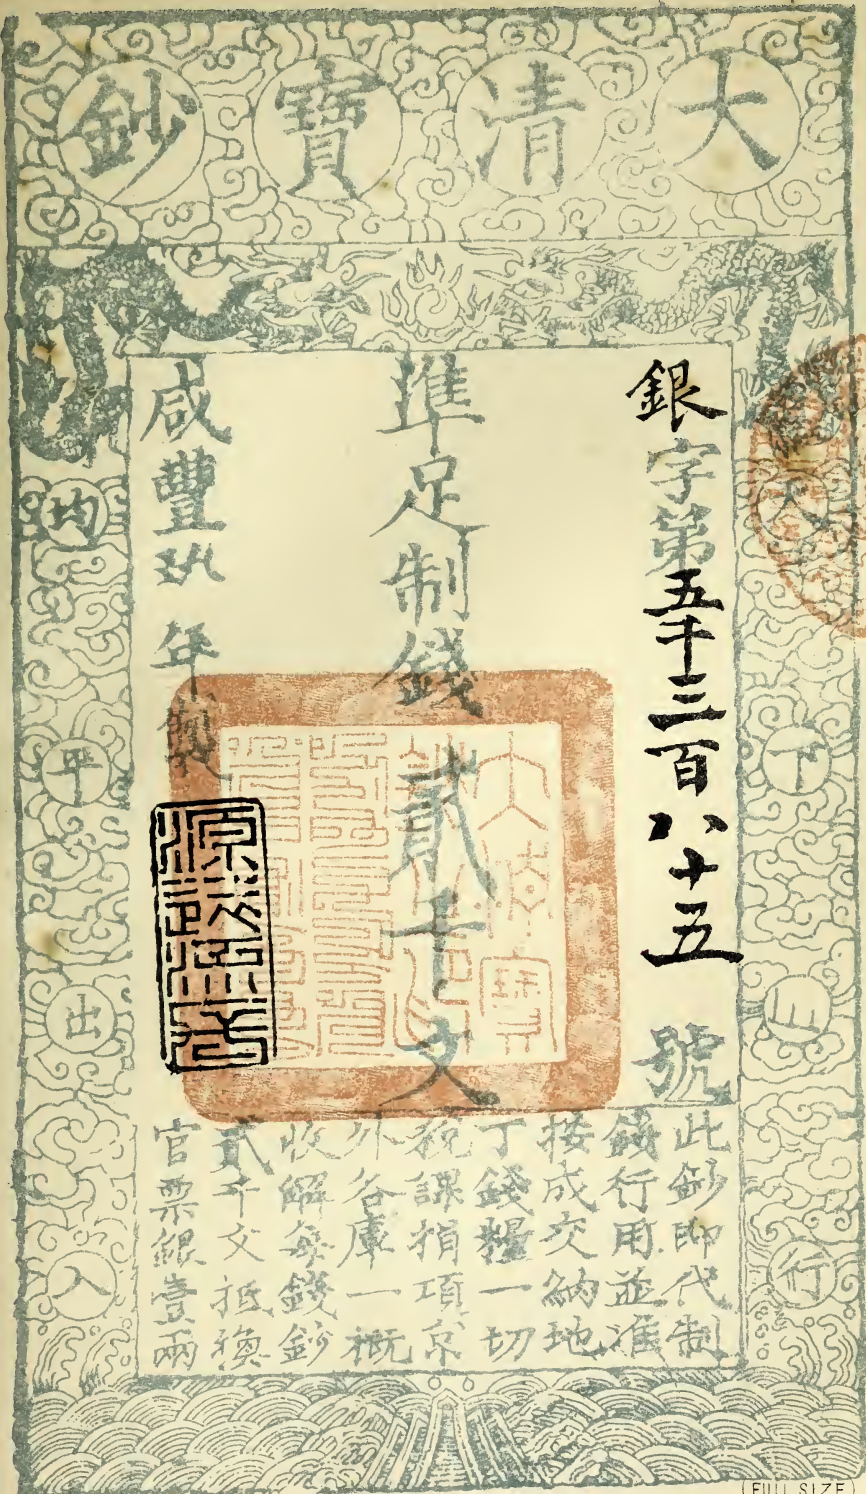 大清寶鈔
天下通行
均平出入
銀字第五千三百八十五號
準足制錢貳千文
咸豐玖年製
此鈔即代制
錢行用並准
按成交納地
丁錢糧一切
稅課捐項京
外各庫一概
收解每錢鈔
貳千文抵換
官票銀壹兩
(FULL SIZE)